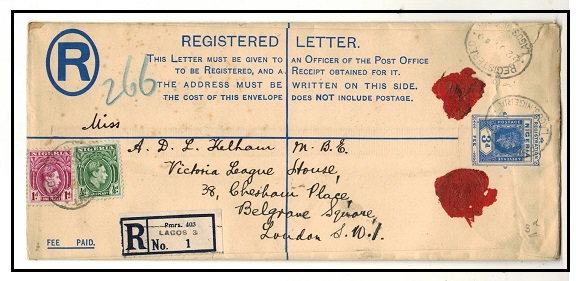 REGISTERED LETTER.
R
THIS LETTER MUST BE GIVEN TO AN OFFICER OF THE POST OFFICE
TO BE REGISTERED, AND A RECEIPT OBTAINED FOR IT.
THE ADDRESS MUST BE WRITTEN ON THIS SIDE.
THE COST OF THIS ENVELOPE DOES NOT INCLUDE POSTAGE.
266
REGISTERED
LAGOS
Miss
A. D. L. Kelham M.B.E.
Victoria League House,
38, Chesham Place,
Belgrave Square,
London S.W.1.
NIGERIA
1d
NIGERIA
½d
REGISTRATION
NIGERIA
3d
FEE
POSTAGE
R
Pmrs. 403
LAGOS 3
No. 1
FEE PAID.